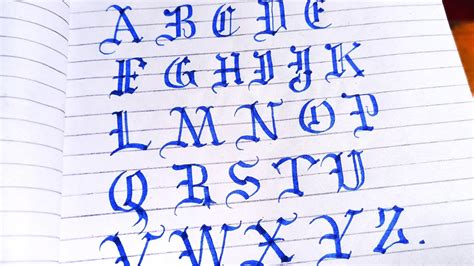 A B C D E
F G H I J K
L M N O P
Q R S T U
V W X Y Z.